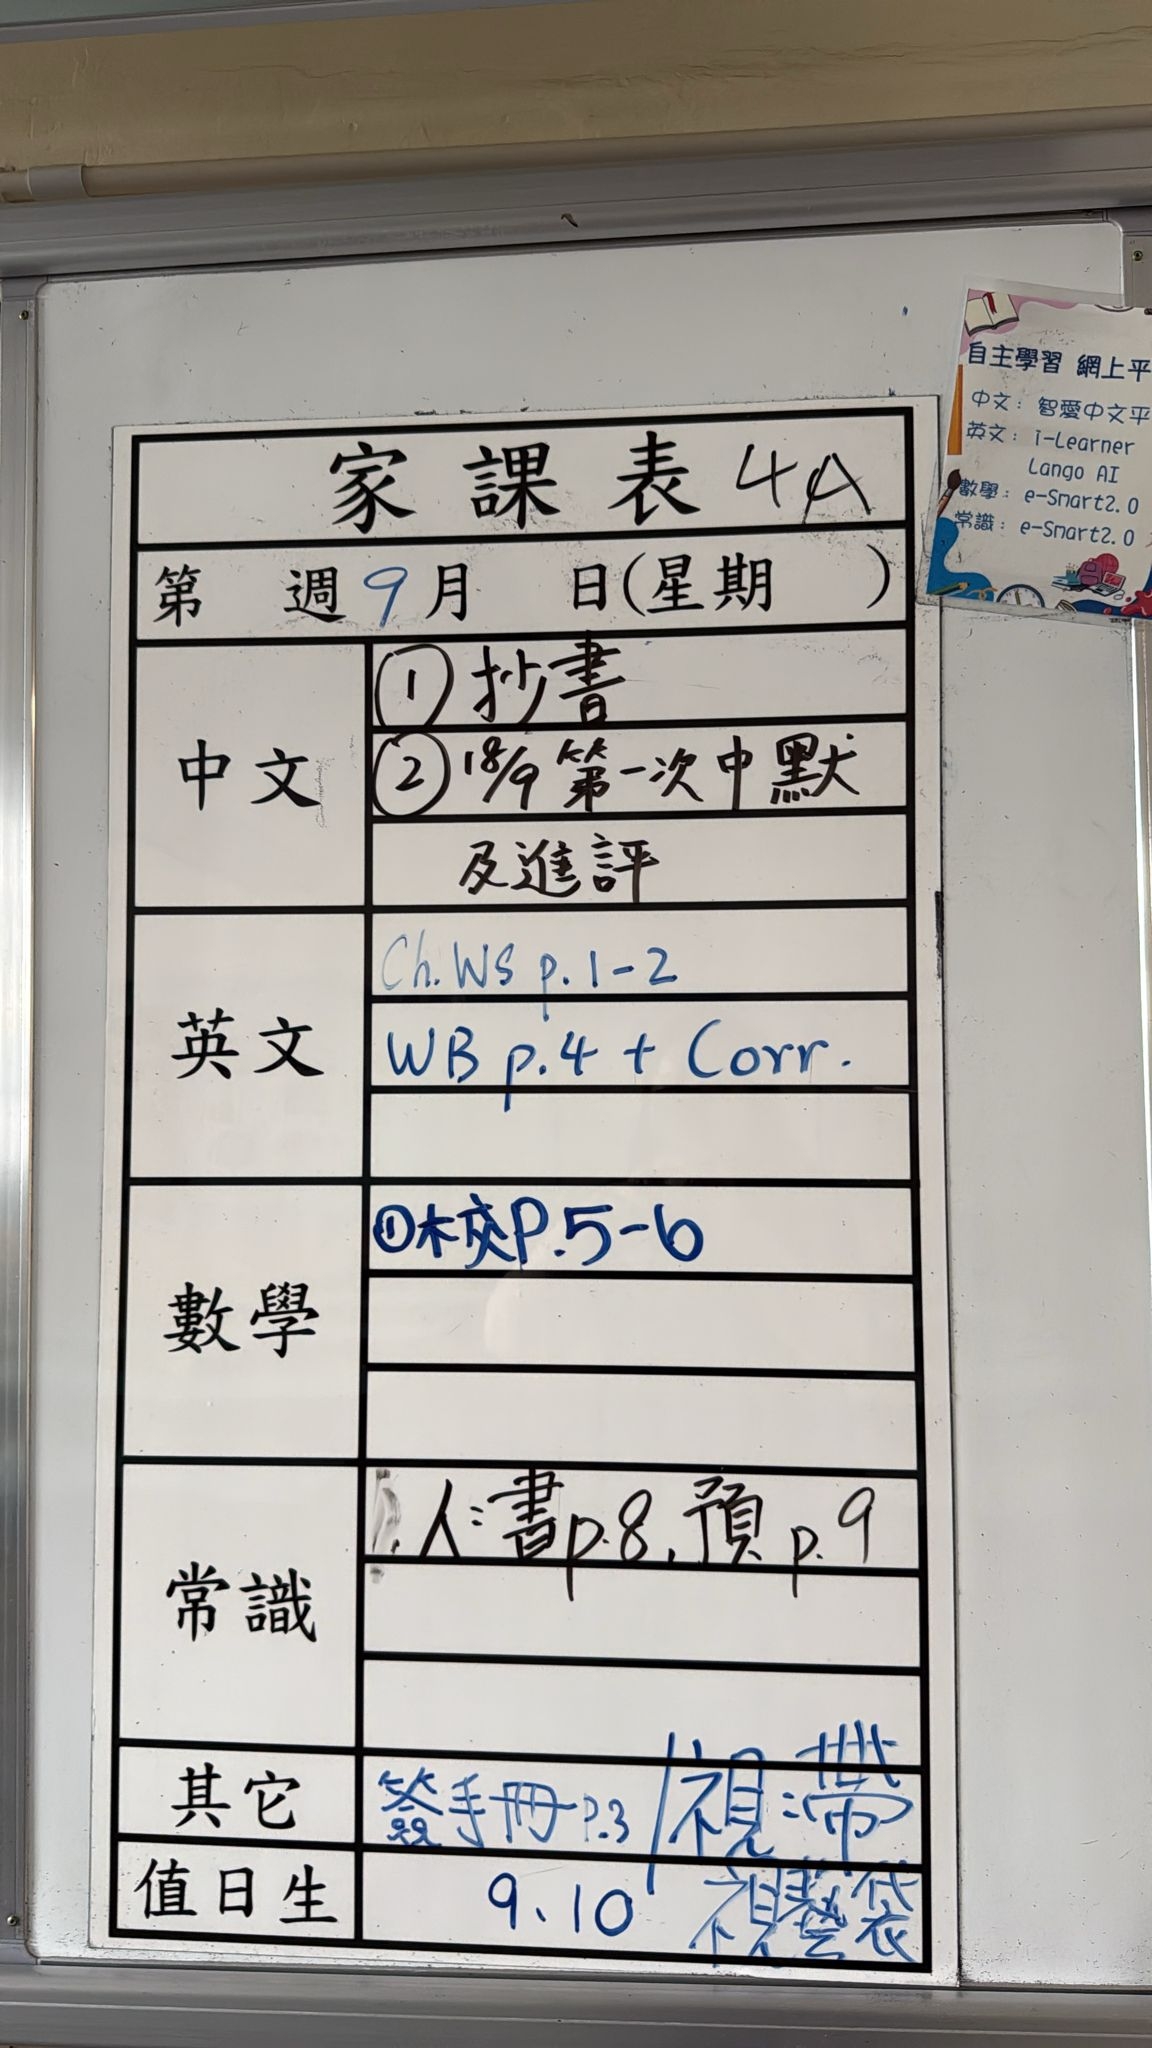 家課表 4A
第 週 9月 日(星期 )
中文
① 抄書
② 18/9 第一次中默
及進評
英文
Ch. WS p. 1-2
WB p.4 + Corr.
數學
① 校P.5-6
常識
1. 人:書p.8, 預p.9
其它
簽手冊P.3 / 視:帶
視藝袋
值日生
9、10
自主學習 網上平
中文: 智愛中文平
英文: i-Learner
Lango AI
數學: e-Smart2.0
常識: e-Smart2.0